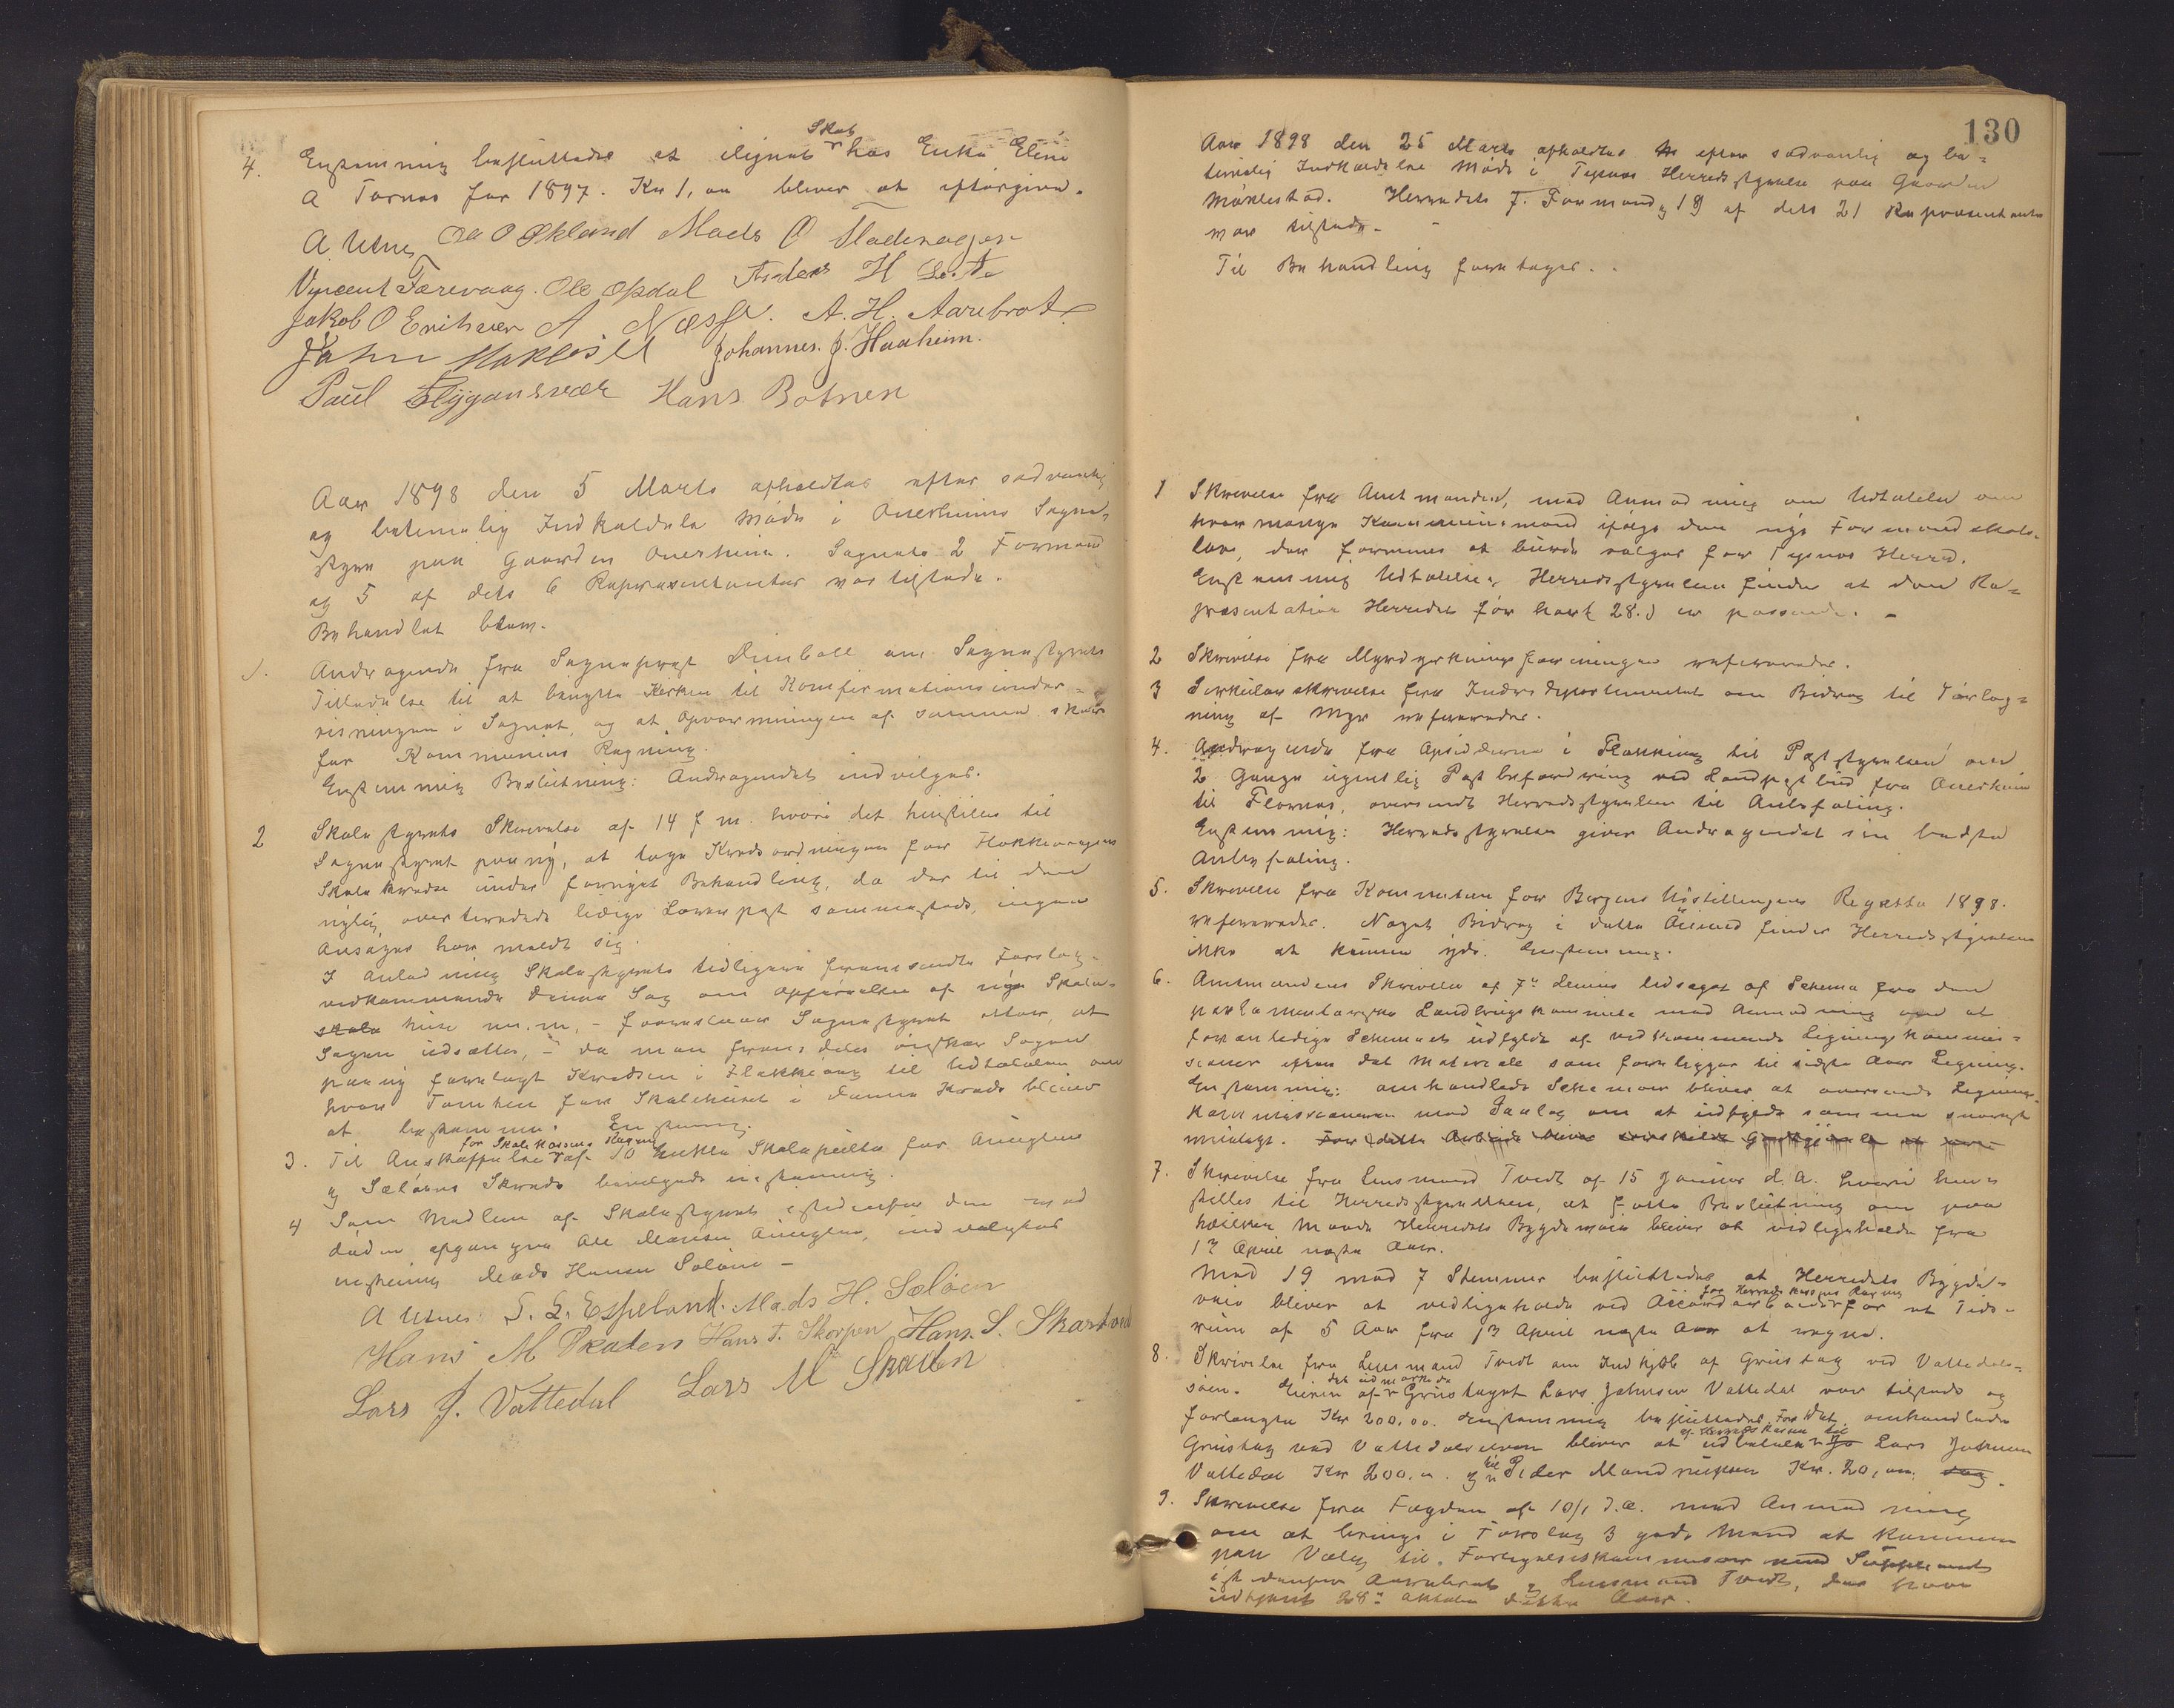 4. Enstemmig besluttedes at ilignet Skat hos Enke Eline
A Tornes for 1897. Kr 1,00 bliver at eftergive.
A Utnes Ole O Økland Mads O Fladenager
Vincent Færevaag. Ole Opdal Anders H Leite
Jakob O Eriksen A. Næsse. A. H. Aarebrot
John Møklestad Johannes. J. Haaheim.
Paul Flygansvær Hans Botnen
Aar 1898 den 5 Marts afholdtes efter sedvanlig
og betimelig Indkaldelse Møde i Onerheims Sogne-
styre paa Gaarden Onerheim. Sognets 2 Formænd
og 5 af dets 6 Repræsentanter var tilstede.
Behandlet blev.
1. Andragende fra Sogneprest Dunball om Sognestyrets
Tilladelse til at benytte Kirken til Konfirmationsunder-
visningen i Sognet, og at Opvarmningen af samme sker
for Kommunens Regning.
Enstemmig Beslutning: Andragendet indvilges.
2 Skolestyrets Skrivelse af 14 f m. hvori det henstilles til
Sognestyret paany, at tage Kredsordningen for Flakkevaagens
Skolekreds under fornyet Behandling, da der til den
nylig averterede ledige Lærerpost sammesteds, ingen
Ansøger har meldt sig.
I Anledning Skolestyrets tidligere fremsendte Forslag
vedkommende denne Sag om Opførelse af nye Skole-
skole huse m. m, - foreslaar Sognestyret atter, at
Sagen udsættes, - da man fremdeles ønsker Sagen
paany forelagt Kredsen i Flakkevaag til Udtalelse om
hvor Tomten for Skolehuset i denne Kreds bliver
at bestemme. Enstemmig.
3. Til Anskaffelse for Skolekassens Regning af 10 Skolepulte for Aunglens
og Søløens Skreds bevilgedes enstemmig.
4 Som Medlem af Skolestyret istedenfor den ved
døden afgangne Ole Larsen Aunglen, indvælgtes
enstemmig Mads Hansen Søløen -
A Utnes S. L. Espeland. Mads H. Søløen
Hans M Skaden Hans T. Skorpen Hans. S. Skartveit
Lars J. Vattedal Lars M Skaden
130
Aar 1898 den 25 Marts afholdtes efter sedvanlig og be-
timelig Indkaldelse Møde i Tysnes Herredsstyrelse paa Gaarden
Møklestad. Herredets 7. Formænd og 19 af dets 21 Repræsentanter
var tilstede. -
Til Behandling foretoges. .
1 Skrivelse fra Amtmanden, med Anmodning om Udtalelse om
hvor mange Kommunemænd ifølge den nye Formandskabs-
lov, der formenes at burde vælges for Tysnes Herred.
Enstemmig Udtalelse, Herredsstyrelsen finder at den Re-
præsentation Herredet før har (28.) er passende. -
2 Skrivelse fra Myrdyrkningsforeningen refereredes.
3 Cirkulærskrivelse fra Indredepartementet om Bidrag til Tørlæg-
ning af Myr refereredes.
4. Andragende fra Opsidderne i Flakkevaag til Poststyrelsen om
2 Gange ugentlig Postbefordring ved Landpostbud fra Onerheim
til Flornes, oversendt Herredsstyrelsen til Anbefaling.
Enstemmig: Herredsstyrelsen giver Andragendet sin bedste
Anbefaling.
5. Skrivelse fra Komiteen for Bergens Udstillingens Regatta 1898.
refereredes. Noget Bidrag i dette Øiemed finder Herredsstyrelsen
ikke at kunne yde. Enstemmig.
6. Amtmandens Skrivelse af 7de dennes ledsaget af Schema fra den
parlamentariske Landbrugskommission med Anmodning om at
foranledige Schemaet udfyldt af vedkommende Ligningskommis-
sioner efter det Materiale som foreligger til sidste Aars Ligning.
Enstemmig: omhandlede Schemaer bliver at oversende Lignings-
kommissionerne med Paalæg om at udfylde samme snarest
muligt. For dette Arbeide bliver
7. Skrivelse fra Lensmand Tvedt af 15 Januar d. A. hvori hen-
stilles til Herredsstyrelsen, at fatte Beslutning om paa
hvilken Maade Herredets Bygdeveie bliver at vedligeholde fra
13 April næste Aar.
Med 19 mod 7 Stemmer besluttedes at Herredets Bygde-
veie bliver at vedligeholde ved Accordarbeide for Herredskassens Regning for et Tids-
rum af 5 Aar fra 13 April næste Aar at regne.
8. Skrivelse fra Lensmand Tvedt om Indkjøb af Grustag ved Vattedals-
søen. Eieren af det udmærkede Grustaget Lars Johnsen Vattedal var tilstede og
forlangte Kr 200,00. Enstemmig besluttedes, For det omhandlede
Grustag ved Vattedalselven bliver at udbetale af Herredskassen til Lars Johnsen
Vattedal Kr 200,00. og til Peder Mandrupsen Kr. 20,00.
9. Skrivelse fra Fogden af 10/1 d.A. med Anmodning
om at bringe i Forslag 3 gode Mænd at komme
paa Valg til Forligelseskommissær med Suppleant
istedenfor Aarebrot og Lensmand Tvedt, der have
udtjent 28de Oktober dette Aar.